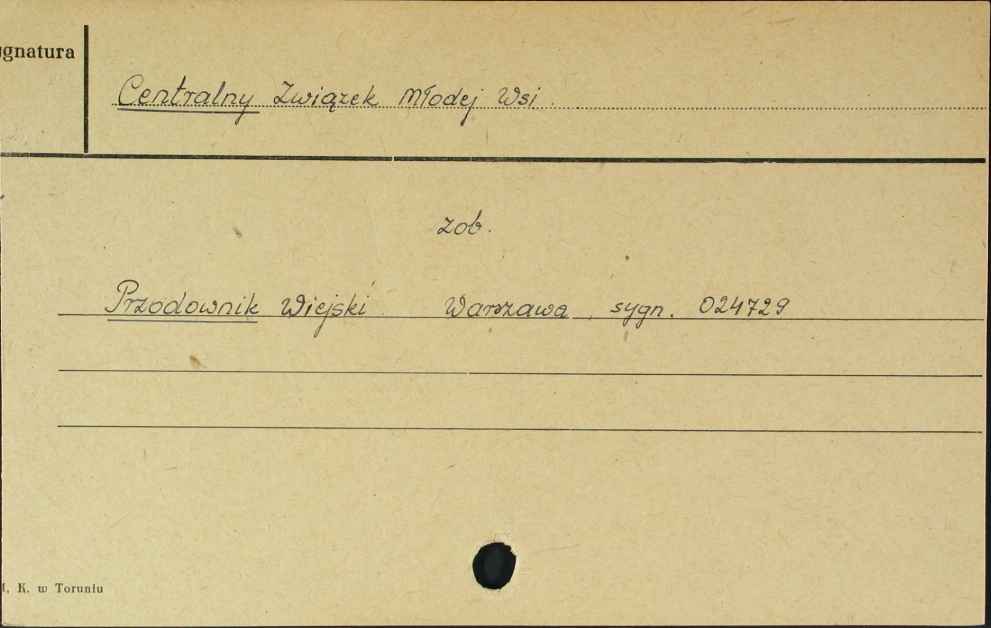 ygnatura
Centralny Związek Młodej Wsi.
zob.
Przodownik Wiejski Warszawa, sygn. 024729
K. w Toruniu